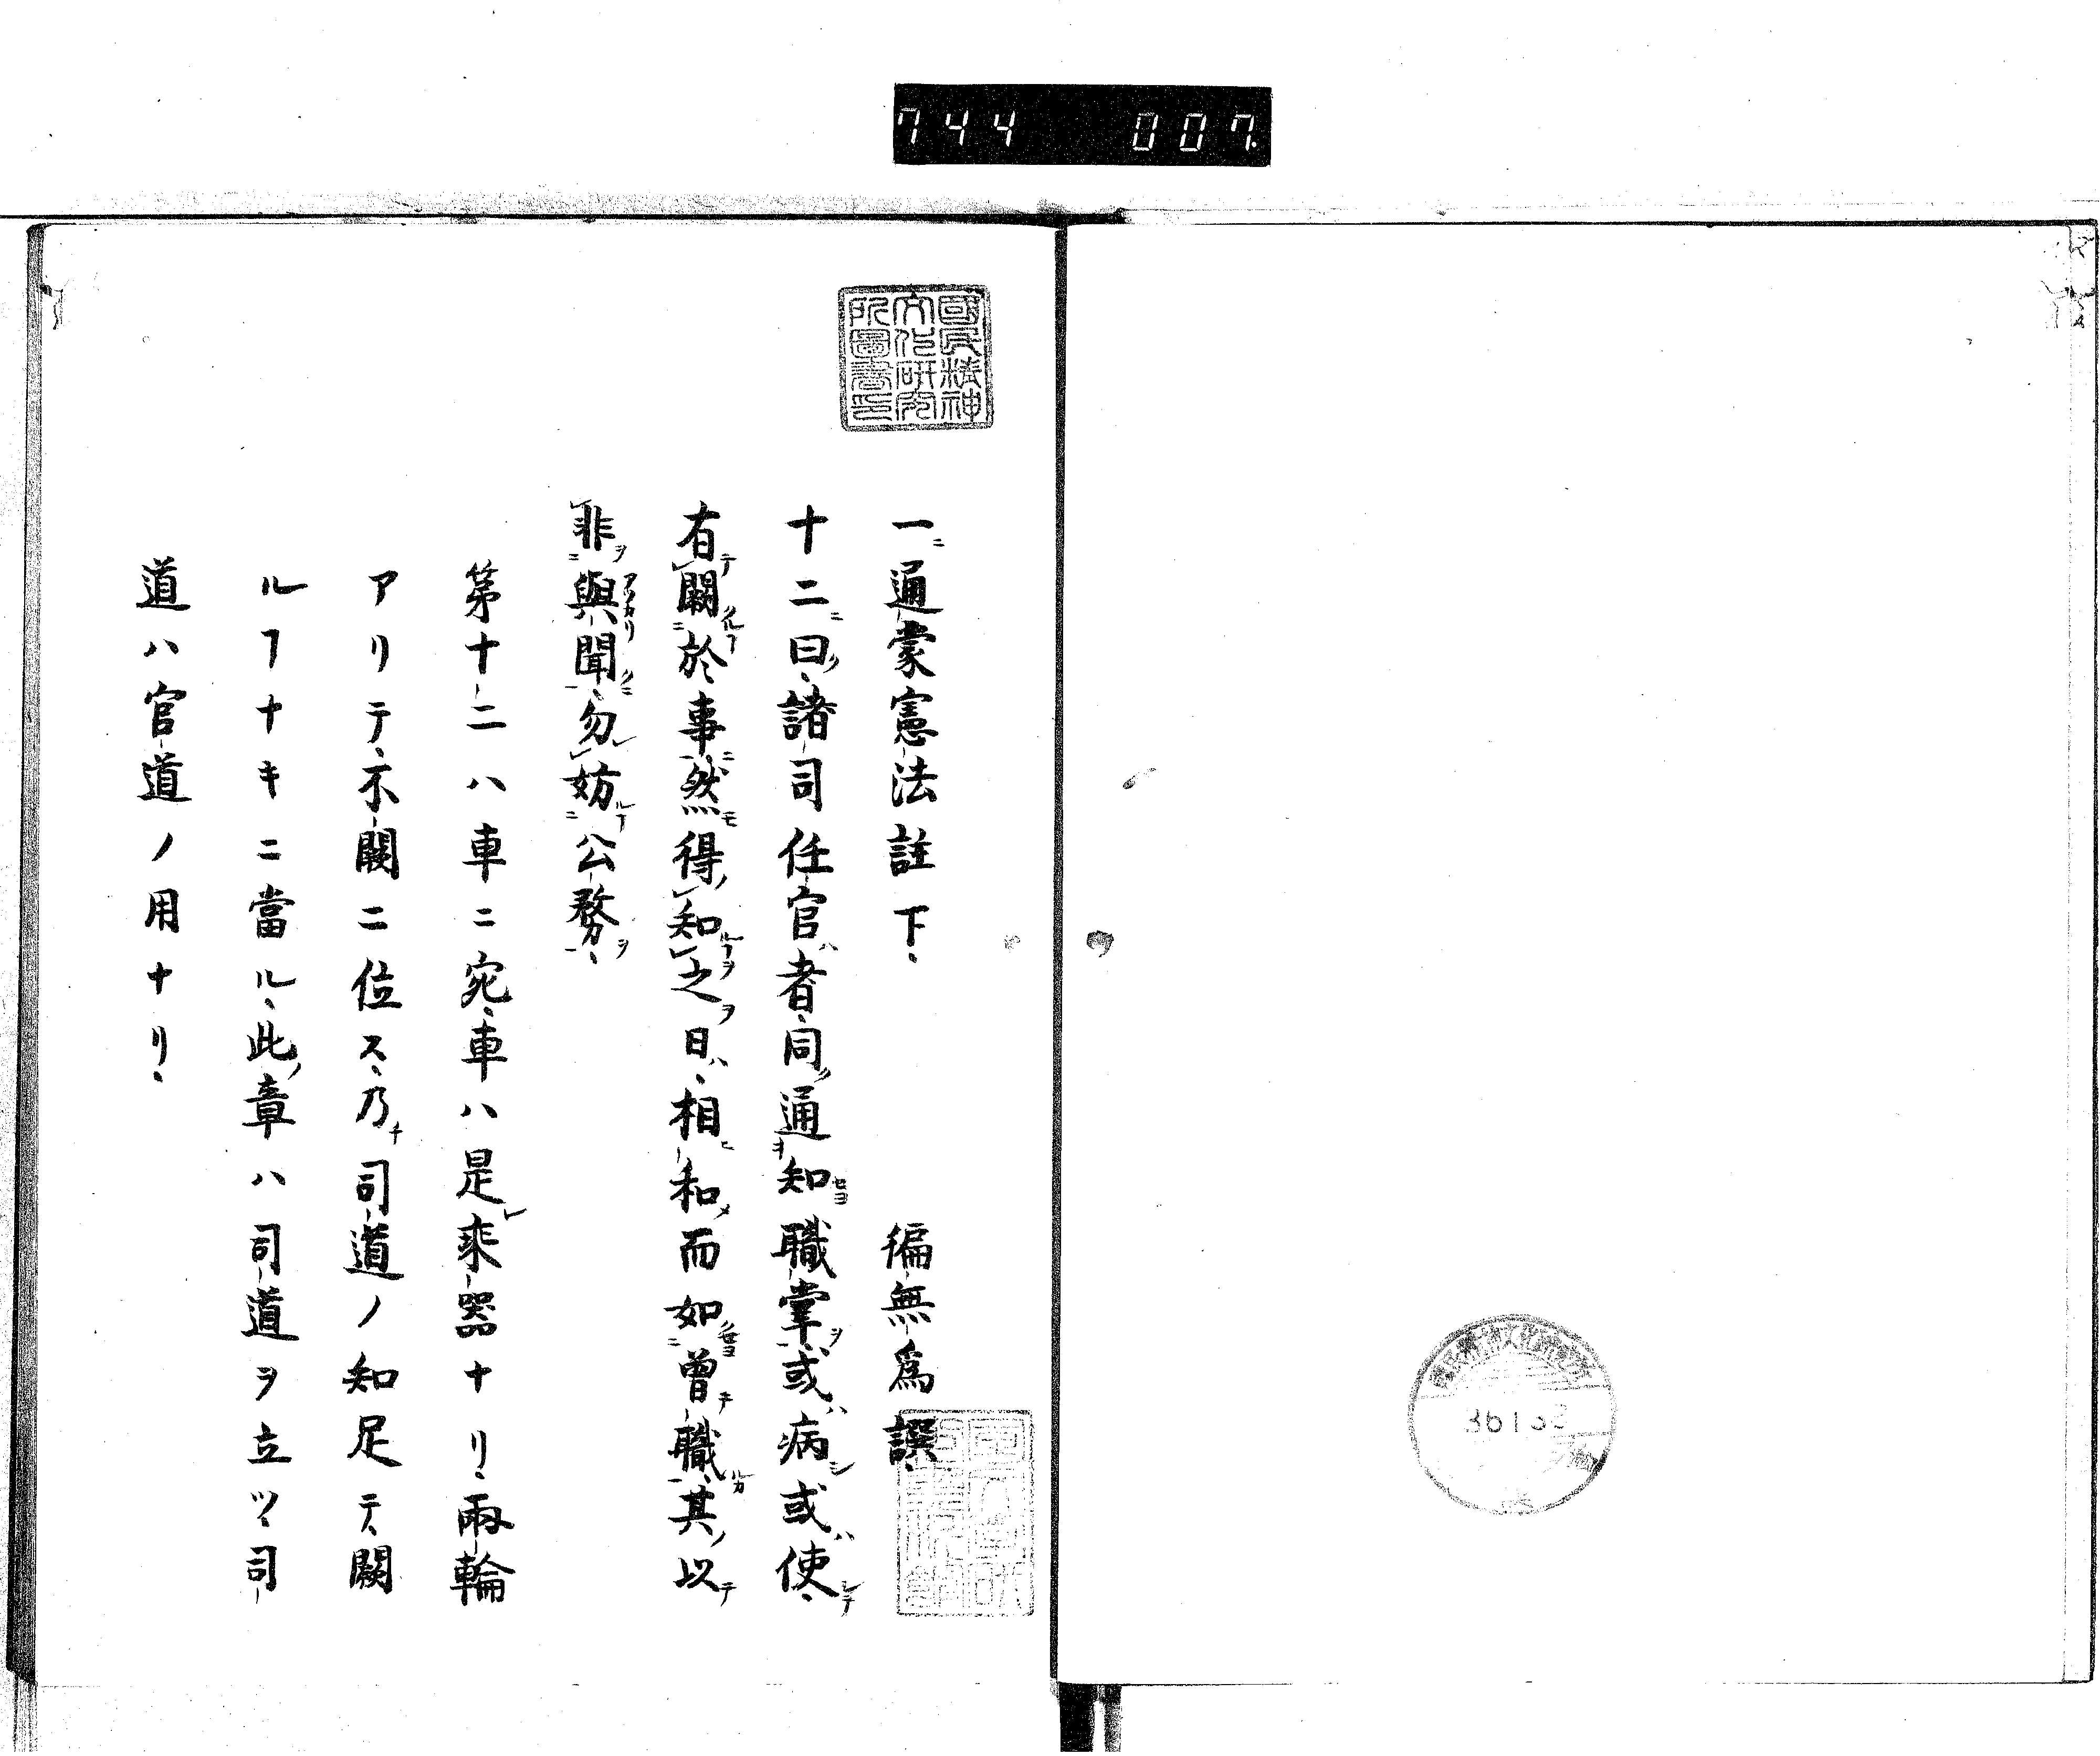 744 007
國民精神
文化研究
所圖書印
一通蒙憲法註下、
徧無為譔
十二曰、諸司任官者、同通知職掌、或病或使、
有闕於事、然得知之日、相和而如曾職、其以
非與聞、勿妨公務、
第十二ハ車ニ宛、車ハ是乘器ナリ、兩輪
アリテ、不闕ニ位ス、乃チ司道ノ知足テ、闕
ルヿナキニ當ル、此章ハ司道ヲ立ツ、司
道ハ官道ノ用ナリ、